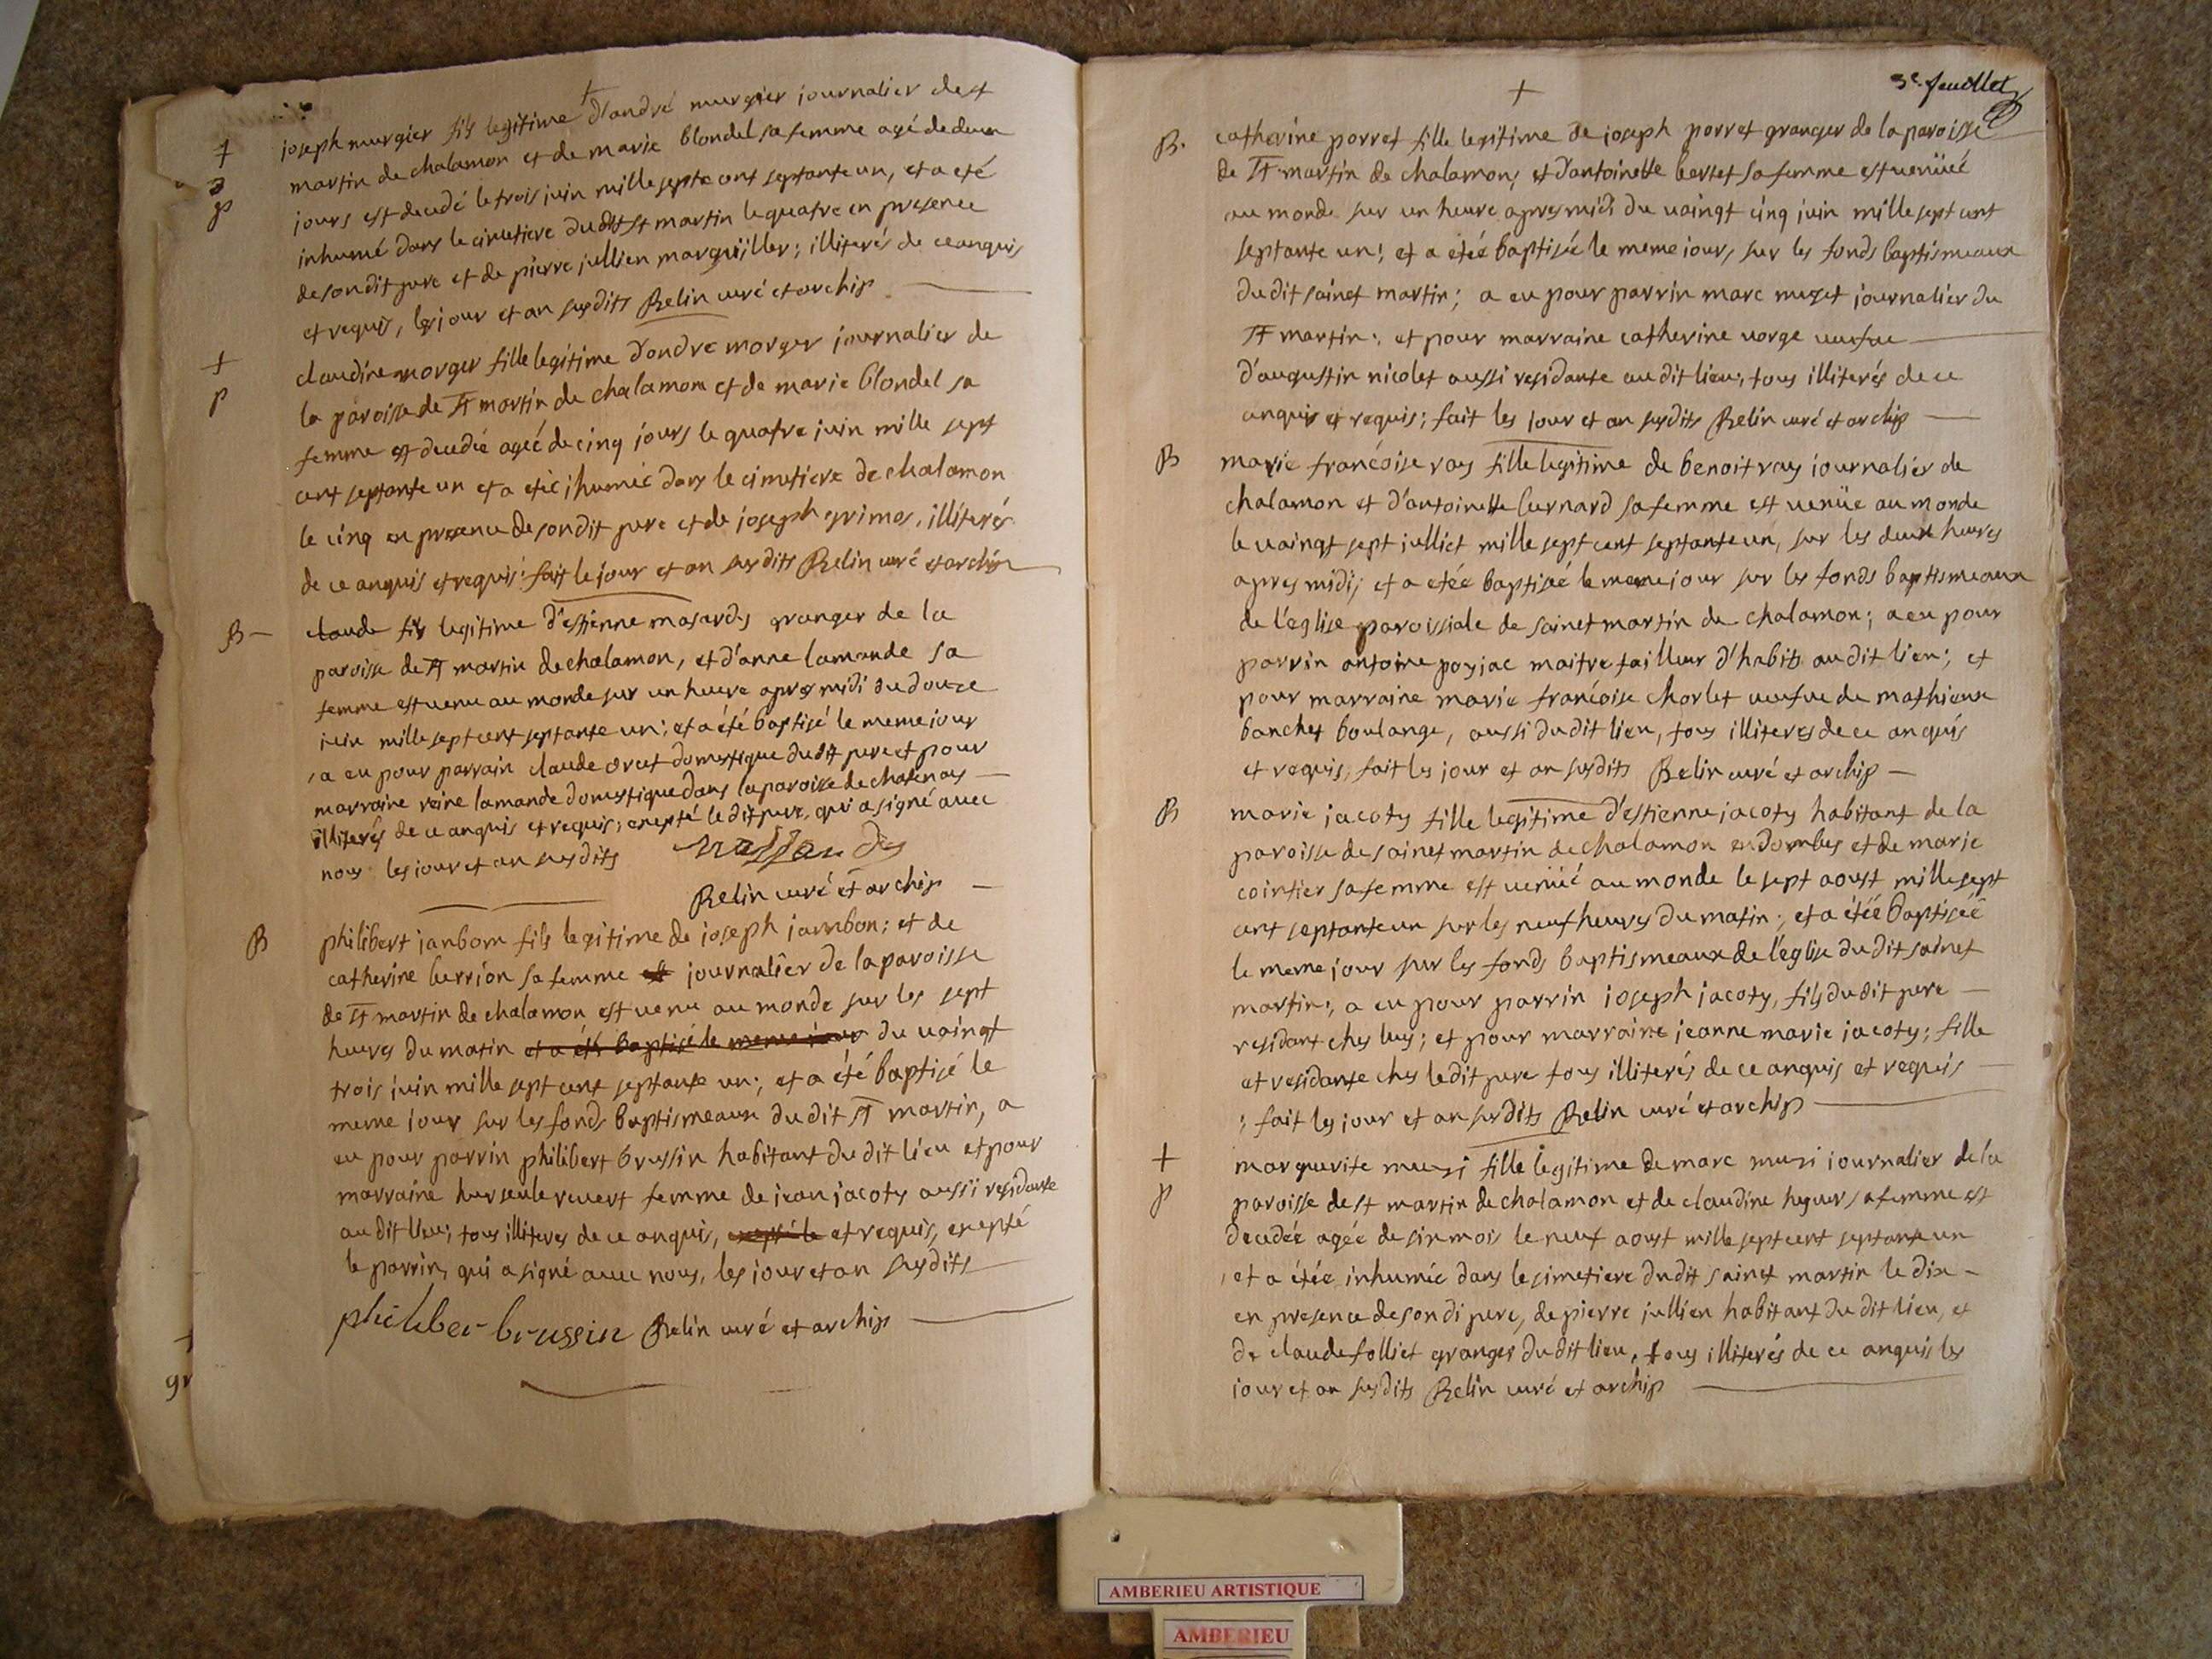 +
joseph murgier fils legitime d'andré murgier journalier de st
martin de chalamon et de marie blondel sa femme agé de deux
jours est decedé le trois juin mille septe cent septante un, et a eté
inhumé dans le cimetiere dudit st martin le quatre en presence
de son dit pere et de pierre jullien marguïller; illiterés de ce anquis
et requis, les jour et an susdits Relin curé et archip
+
p
claudine morger fille legitime d'andre morger journalier de
la paroisse de st martin de chalamon et de marie blondel sa
femme est decedée ageé de cinq jours le quatre juin mille sept
cent septante un et a etéé ihumeé dans le cimetiere de chalamon
le cinq en presence de son dit pere et de joseph grimos, illiterés
de ce anquis et requis: fait le jour et an susdits Relin curé et archip
B
claude fils legitime d'estienne masardy granger de la
paroisse de st martin de chalamon, et d'anne lamande sa
femme est venu au monde sur un heure apres midi du douze
juin mille sept cent septante un; et a été baptisé le meme jour
, a eu pour parrain claude orcet domestique dudit pere et pour
marraine reine lamande domestique dans la paroisse de chatenay
illiterés de ce anquis et requis; excepté le dit pere, qui a signé avec
nous les jour et an susdits massardy
Relin curé et archip
B
philibert janbom fils legitime de joseph jambon; et de
catherine berrion sa femme est journalier de la paroisse
de st martin de chalamon est venu au monde sur les sept
heures du matin et a été baptisé le meme jour du vaingt
trois juin mille sept cent septante un; et a été baptisé le
meme jour sur les fonds baptismeaux du dit st martin, a
eu pour parrin philibert brussin habitant du dit lieu et pour
marraine hurseule revert femme de jean jacoty aussi residante
au dit lieu; tous illiteres de ce anquis, excepté le et requis, excepté
le parrin, qui a signé avec nous, les jour et an susdits
philiber brussin Relin curé et archip
3e feuillet
+
B.
catherine porret fille legitime de joseph porret granger de la paroisse
de st martin de chalamon, et d'antoinette bertet sa femme est venüeé
au monde sur un heure apres midi du vaingt cinq juin mille sept cent
septante un; et a etéé baptiséé le meme jour, sur les fonds baptismeaux
du dit sainct martin; a eu pour parrin marc muzet journalier du
st martin; et pour marraine catherine vorge veufve
d'augustin nicolet aussi residante au dit lieu, tous illiterés de ce
anquis et requis; fait les jour et an susdits Relin curé et archip
B
marie francoise ray fille legitime de benoit ray journalier de
chalamon et d'antoinette bernard sa femme est venüe au monde
le vaingt sept julliet mille sept cent septante un, sur les deux heures
apres midi; et a etéé baptiséé le meme jour sur les fonds baptismeaux
de l'eglise paroissiale de sainct martin de chalamon; a eu pour
parrin antoine payjac maitre tailleur d'habits au dit lieu; et
pour marraine marie francoise chorlet veufve de mathieux
banchet boulange, aussi du dit lieu, tous illiteres de ce anquis
et requis, fait les jour et an susdits Relin curé et archip
B
marie jacoty fille legitime d'estienne jacoty habitant de la
paroisse de sainct martin de chalamon en dombes et de marie
cointier sa femme est venüe au monde le sept aoust mille sept
cent septante un sur les neuf heures du matin; et a étéé baptiséé
le meme jour sur les fonds baptismeaux de l'eglise du dit sainct
martin; a eu pour parrin joseph jacoty, fils du dit pere
residant ches luy; et pour marraine jeanne marie jacoty; fille
et residante ches le dit pere tous illiterés de ce anquis et requis
; fait les jour et an susdits Relin curé et archip
+
p
marguerite muzi fille legitime de marc muzi journalier de la
paroisse de st martin de chalamon et de claudine heguer sa femme est
decedéé agéé de six mois le neuf aoust mille sept cent septante un
, et a étéé inhuméé dans le simetiere du dit sainct martin le dix
en presence de son di pere, de pierre jullien habitant du dit lieu, et
de claude folliet granger du dit lieu, tous illiterés de ce anquis les
jour et an susdits Relin curé et archip
AMBERIEU ARTISTIQUE
AMBERIEU